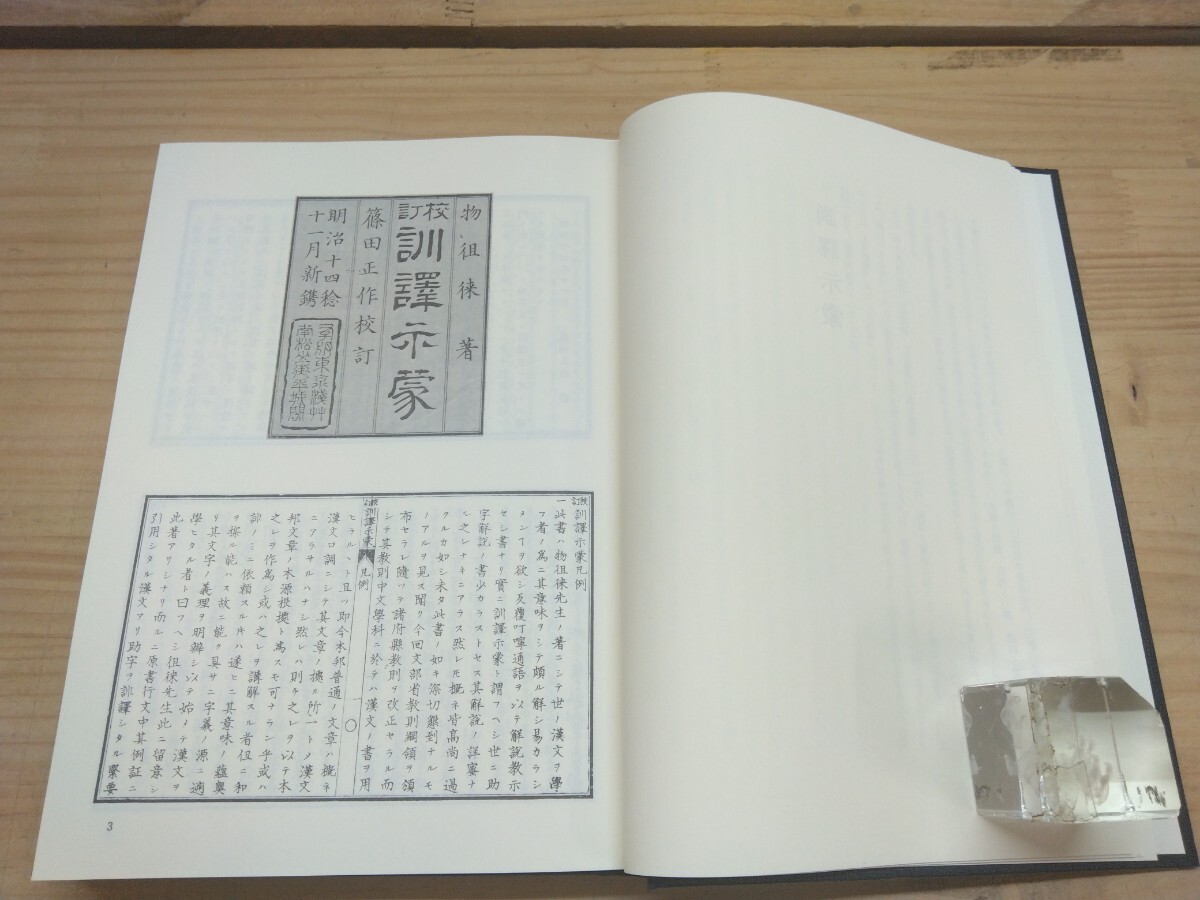 物徂徠著
校訂
訓譯示蒙
篠田正作校訂
明治十四稔
十一月新鐫
校訂訓譯示蒙凡例
一此書ハ物徂徠先生ノ著ニシテ世ノ漢文ヲ學
フ者ノ爲ニ其意味ヲシテ頗ル解シ易カラシ
タンヿヲ欲シ反覆叮嚀通語ヲ以テ解説教示
セシ書ナリ實ニ訓譯示蒙ト謂フヘシ世ニ助
字解説ノ書少カラストセス其解説ノ詳審ナ
ル之レナキニアラス然レ𪜈概ネ皆高尚ニ過
クルカ如シ未タ此書ノ如キ深切懇到ナルモ
ノアルヲ見ス聞ク今回文部省教則綱領ヲ領
布セラレ隨ツテ諸府縣教則ヲ改正セラル而
シテ其教則中文學科ニ於テハ漢文ノ書ヲ用
校訂訓譯示蒙
凡例
一
ヒラルヽト且ツ即今本邦普通ノ文章ハ概ネ
漢文口調ニシテ其文章ノ據ル所一トメ漢文
ニアラサルハナシ然レハ則チ之レヲ以テ本
邦文章ノ本源根據ト爲スモ可ナラン乎或ハ
之レヲ作爲シ或ハ之レヲ講解スル者但ニ和
訓ノミニ依頼スル片ハ遂ヒニ其意味ノ蘊奥
ヲ探ル能ハス故ニ能ク具サニ字義ノ源ニ遡
リ其文字ノ義理ヲ明辨シ以テ始メテ漢文ヲ
學ヒタル者ト曰フヘシ徂徠先生此ニ留意シ
此著アリシナリ而ルニ原書行文中其例証ニ
引用シタル漢文アリ助字ヲ譯シタル緊要
3